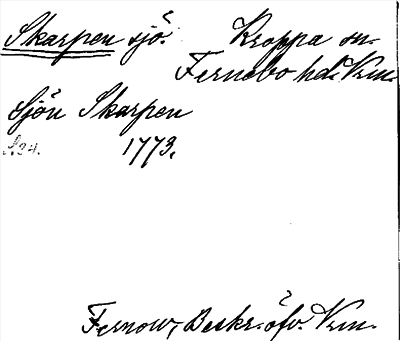 Skarpen sjö. Kroppa sn.
Fernebo hd. Vrm.
Sjön Skarpen
S. 24. 1773.
Fernow, Beskr. öfv. Vrm.